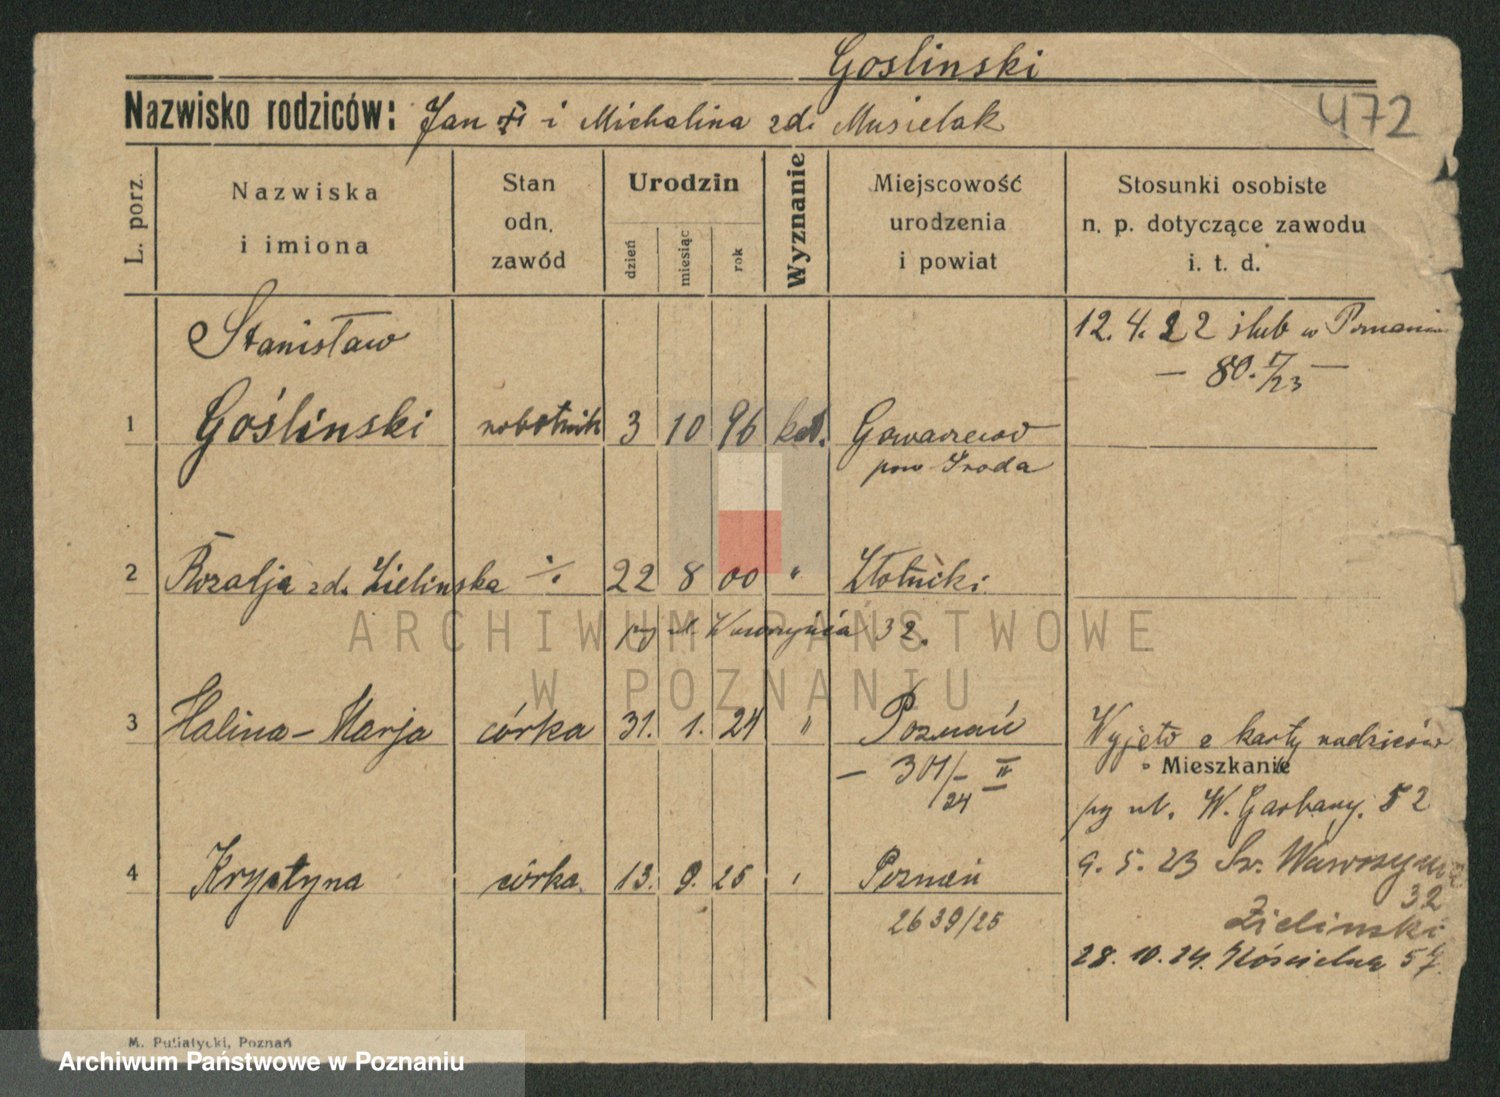 Goslinski
Nazwisko rodziców: Jan i Michalina zd. Musielak
472
L. porz.
Nazwiska
i imiona
Stan
odn.
zawód
Urodzin
dzień
miesiąc
rok
Wyznanie
Miejscowość
urodzenia
i powiat
Stosunki osobiste
n. p. dotyczące zawodu
i. t. d.
12. 4. 22 ślub w Poznaniu
— 80. I/23 —
Stanisław
1 Gośliński robotnik 3 10 96 kat.
pow. Środa
2 Rozalja zd. Zielinska ·/. 22 8 00 " Złotniki
py ul. Wawrzyńca 32.
3 Halina - Marja córka 31. 1. 24 " Poznań
— 301/24 II
Wyjęto z karty rodziców
Mieszkanie
py ul. W. Garbary. 52
4 Krystyna córka. 13. 9. 25 Poznań
2639/25
9. 5. 23 Św. Wawrzyńca
32
Zielinski
28. 10. 24. Kościelna 57
M. Putiatycki, Poznań
ARCHIWUM PAŃSTWOWE
W POZNANIU
Archiwum Państwowe w Poznaniu